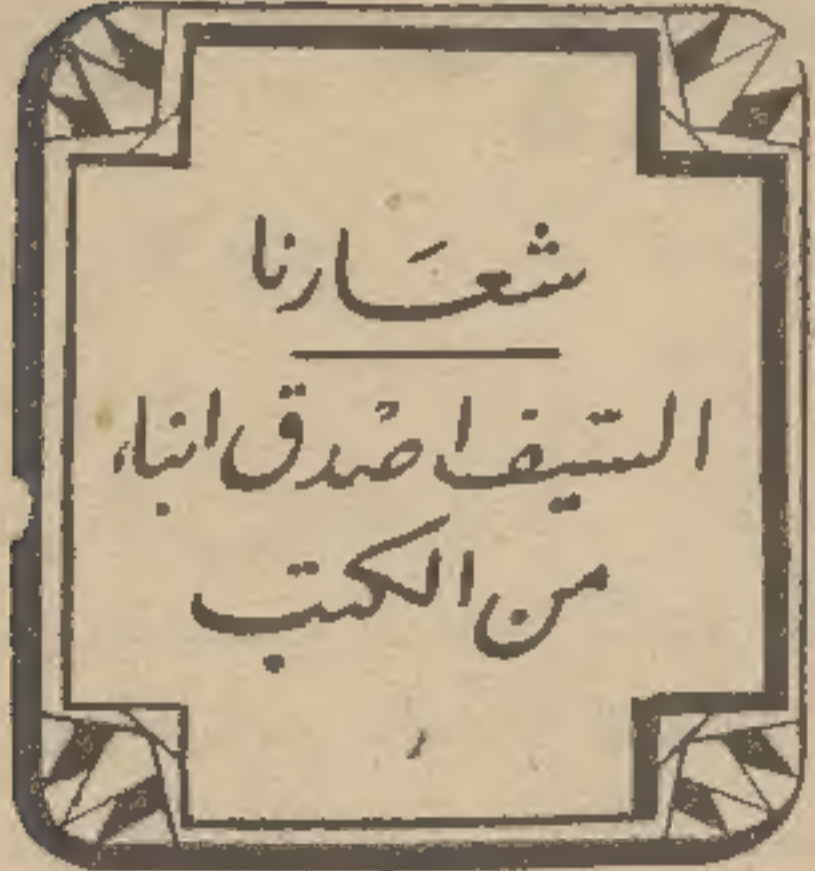 شعَارنا
السيف اصْدق انباء
من الكتب